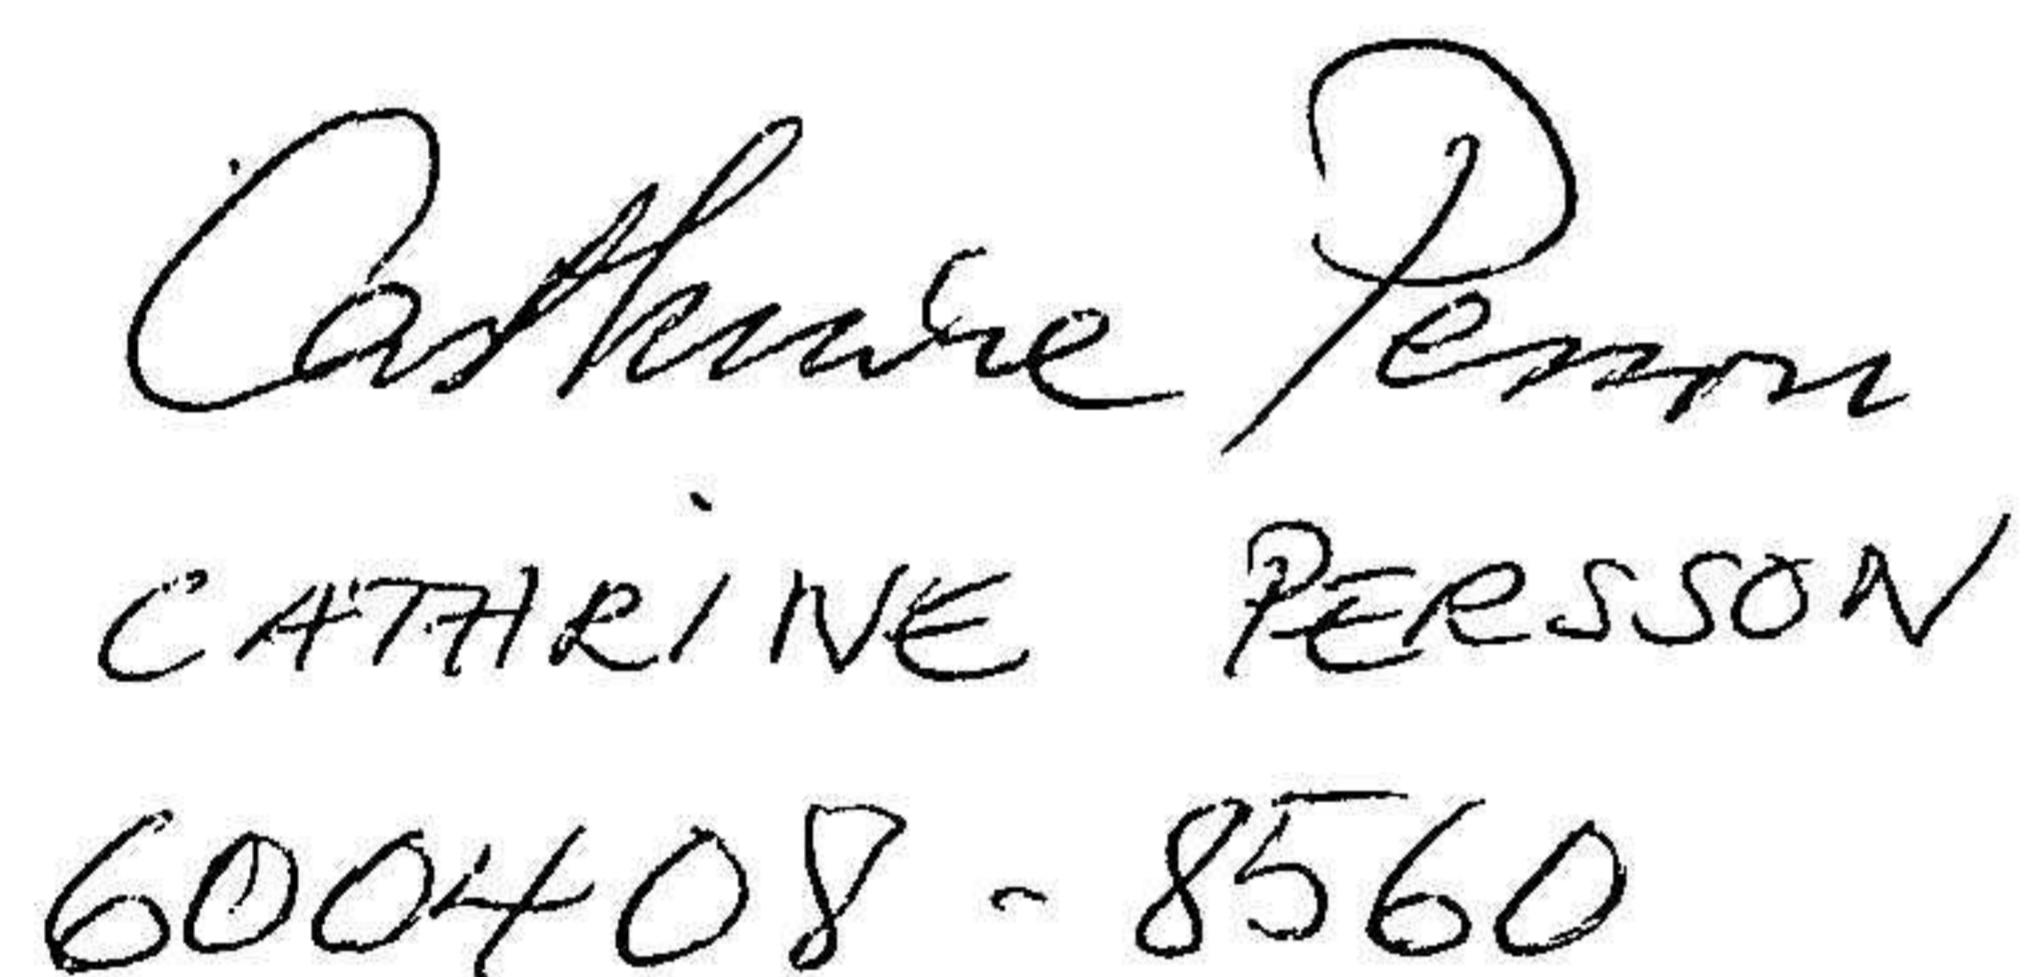 Cathrine Persson
CATHRINE PERSSON
600408-8560